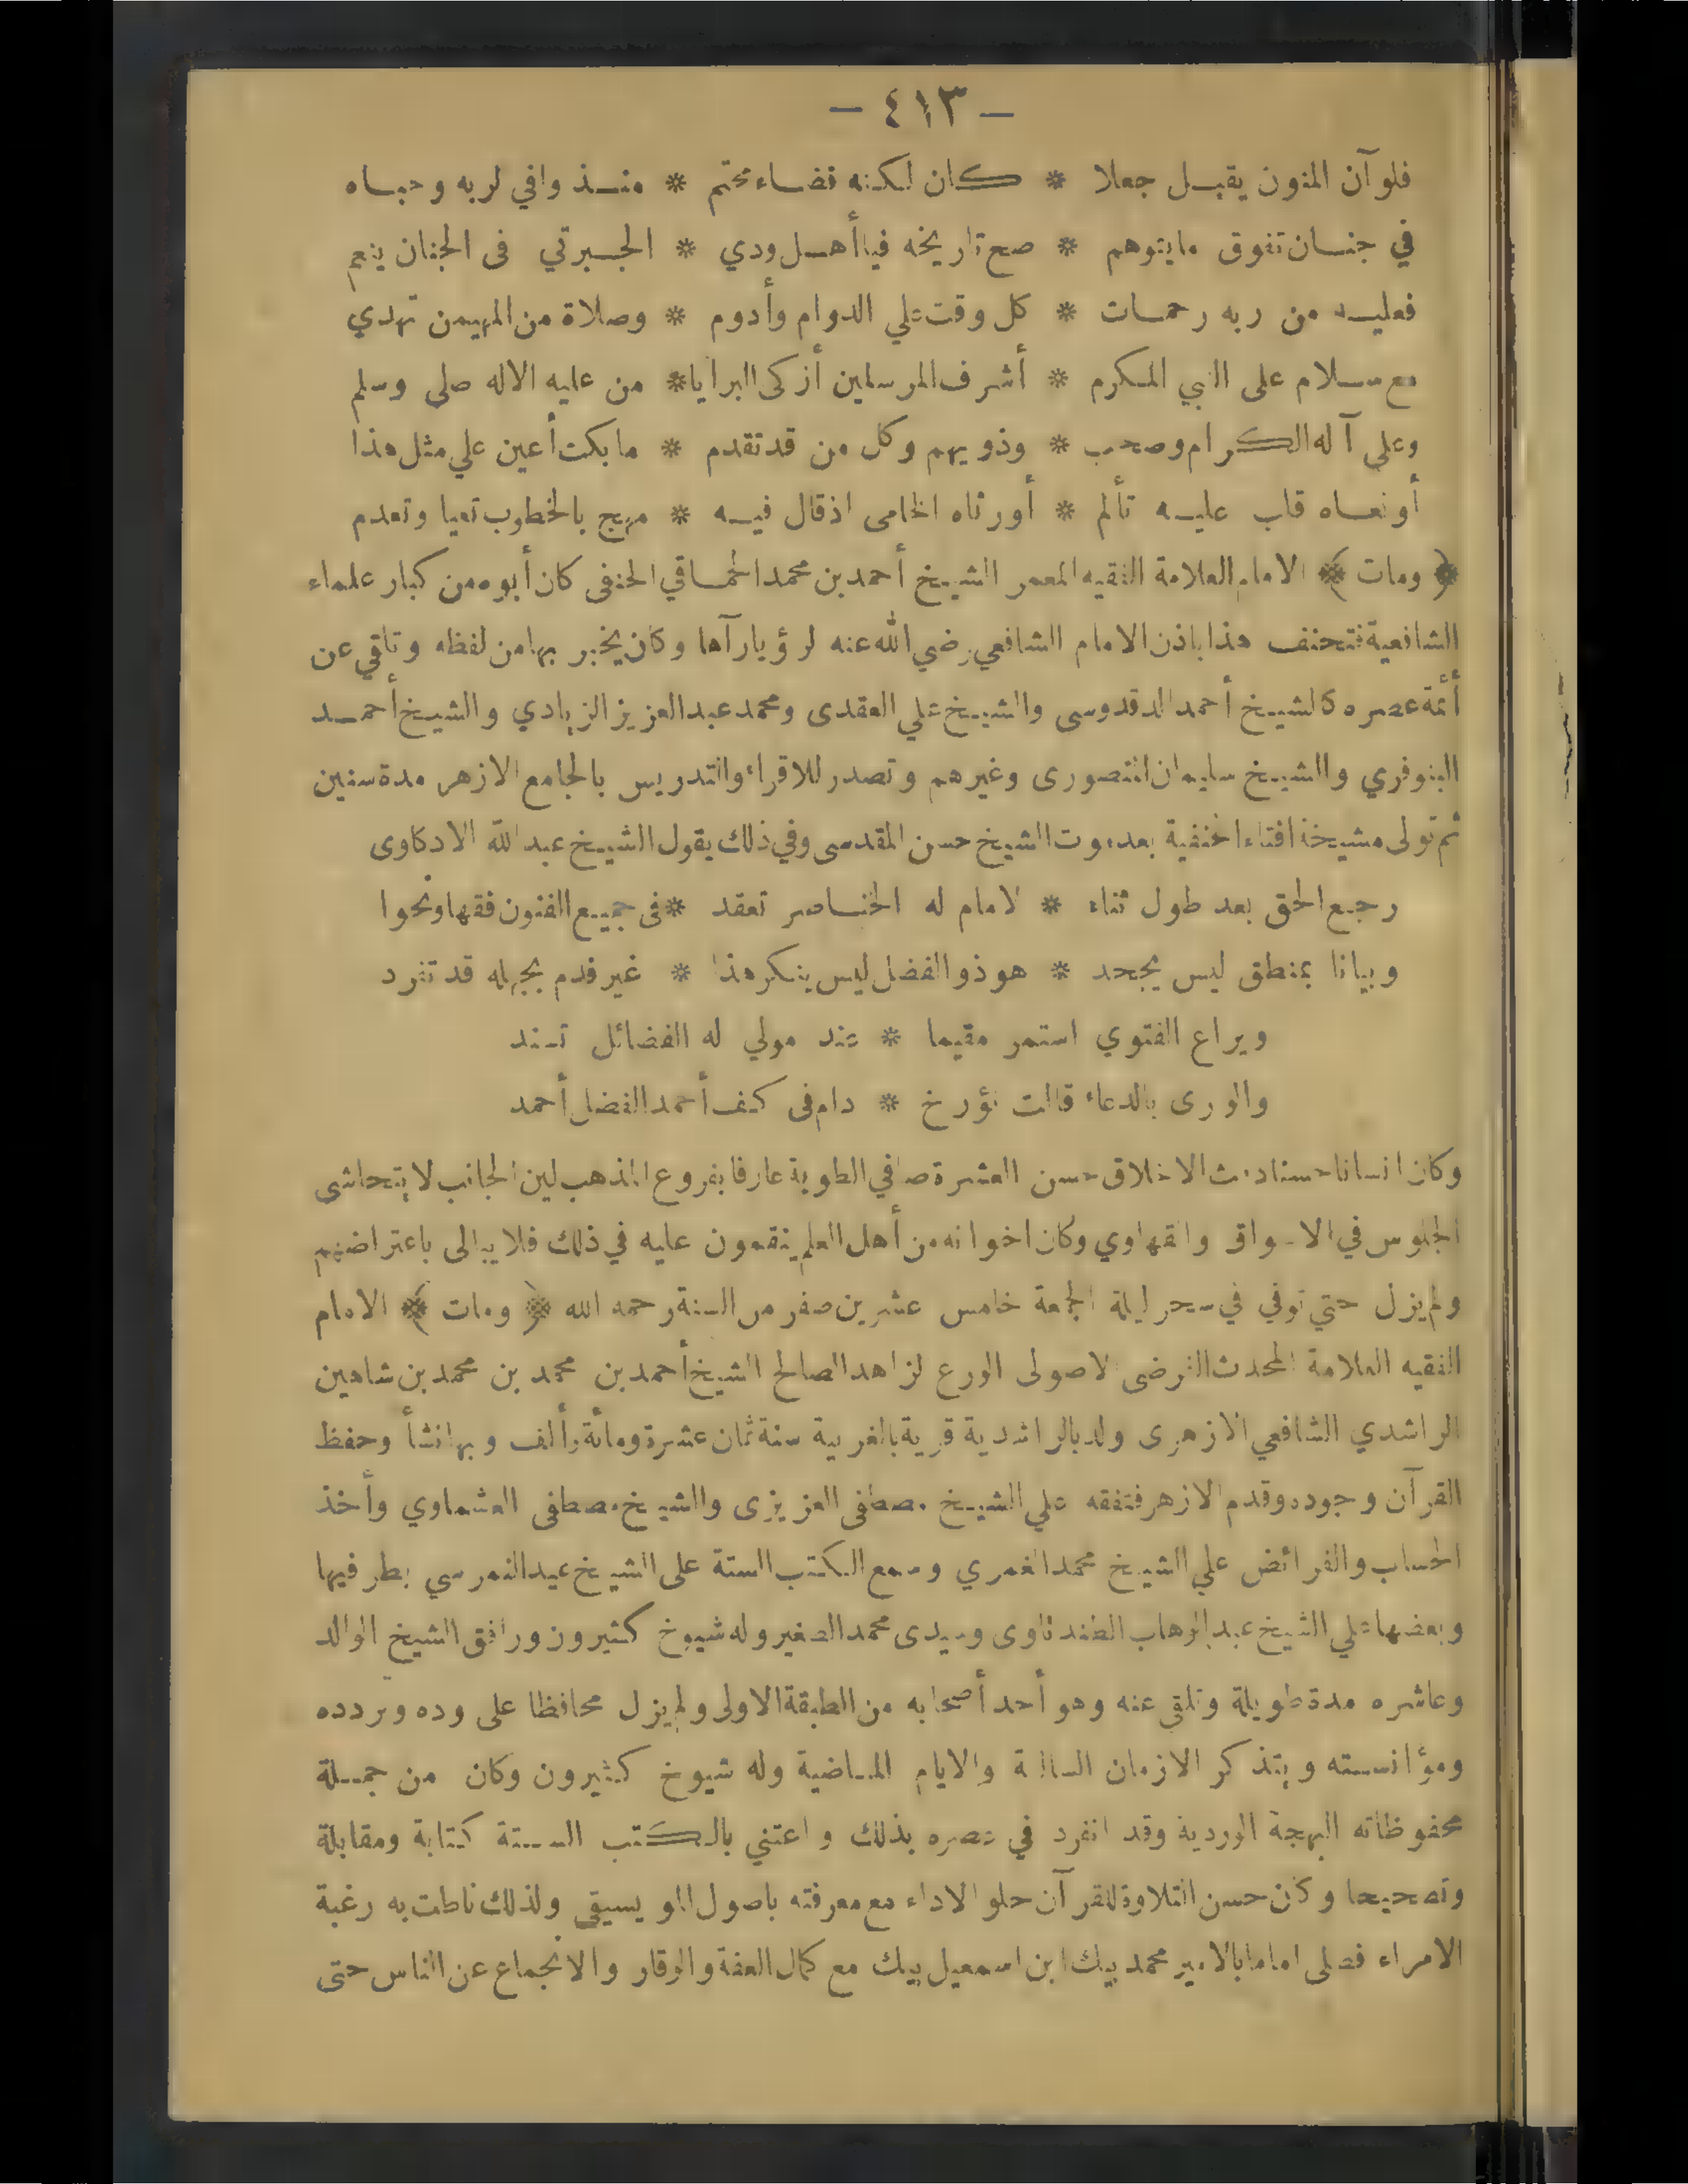 — ٤١٣ —
فلوآن المنون يقبل جعلا * كان لكنه قضاء محتم * منذ وافي لربه وحباه
في جنان تفوق مايتوهم * صح تاريخه فيا أهل ودي * الجبرتي فى الجنان ينعم
فعليه من ربه رحمات * كل وقت علي الدوام وأدوم * وصلاة من المهيمن تهدي
مع سلام على النبي المكرم * أشرف المرسلين أزكى البرايا * من عليه الاله صلى وسلم
وعلى آله الكرام وصحب * وذويهم وكل من قد تقدم * ما بكت أعين علي مثل هذا
أو نعاه قلب عليه تألم * أورثاه الخامى اذ قال فيه * مهج بالخطوب تعيا وتعدم
﴿ ومات ﴾ الامام العلامة الفقيه المعمر الشيخ أحمد بن محمد الحماقي الحنفى كان أبوه من كبار علماء
الشافعية فتحنف هذا باذن الامام الشافعي رضي الله عنه لرؤيا رآها وكان يخبر بها من لفظه وتلقي عن
أئمة عصره كالشيخ أحمد الدقدوسى والشيخ علي العقدى ومحمد عبد العزيز الزيادي والشيخ أحمد
البنوفري والشيخ سليمان المنصورى وغيرهم وتصدر للاقراء والتدريس بالجامع الازهر مدة سنين
ثم تولى مشيخة افتاء الحنفية بعد موت الشيخ حسن المقدسى وفي ذلك يقول الشيخ عبد الله الادكاوى
رجع الحق بعد طول ثناء * لامام له الخناصر تعقد * فى جميع الفنون فقها ونحوا
وبيانا بمنطق ليس يجحد * هو ذو الفضل ليس ينكر هذا * غير فدم بجهله قد تفرد
ويراع الفتوي استمر مقيما * عند مولي له الفضائل تسند
والورى بالدعاء قالت نؤرخ * دام فى كف أحمد الفضل أحمد
وكان انسانا حسنا دمث الاخلاق حسن العشرة صافي الطوية عارفا بفروع المذهب لين الجانب لا يتحاشى
الجلوس في الاسواق والقهاوي وكان اخوانه من أهل العلم ينقمون عليه في ذلك فلا يبالى باعتراضهم
ولم يزل حتي توفي في سحر ليلة الجمعة خامس عشرين صفر من السنة رحمه الله ﴿ ومات ﴾ الامام
الفقيه العلامة المحدث الفرضى الاصولى الورع الزاهد الصالح الشيخ أحمد بن محمد بن محمد بن شاهين
الراشدي الشافعي الازهرى ولد بالراشدية قرية بالغربية سنة ثمان عشرة ومائة وألف وبها نشأ وحفظ
القرآن وجوده وقدم الازهر فتفقه علي الشيخ مصطفى العزيزى والشيخ مصطفى العشماوي وأخذ
الحساب والفرائض علي الشيخ محمد الغمري وسمع الكتب الستة على الشيخ عيد النمرسي بطرفيها
وبعضها علي الشيخ عبد الوهاب الطندتاوى وسيدى محمد الصغير وله شيوخ كثيرون ورافق الشيخ الوالد
وعاشره مدة طويلة وتلقى عنه وهو أحد أصحابه من الطبقة الاولى ولم يزل محافظا على وده وتردده
ومؤانسته ويتذكر الازمان السالفة والايام الماضية وله شيوخ كثيرون وكان من جملة
محفوظاته البهجة الوردية وقد انفرد في عصره بذلك واعتني بالكتب الستة كتابة ومقابلة
وتصحيحا وكان حسن التلاوة للقرآن حلو الاداء مع معرفته باصول الموسيقى ولذلك ناطت به رغبة
الامراء فصلى اماما بالامير محمد بيك ابن اسمعيل بيك مع كمال العفة والوقار والانجماع عن الناس حتى